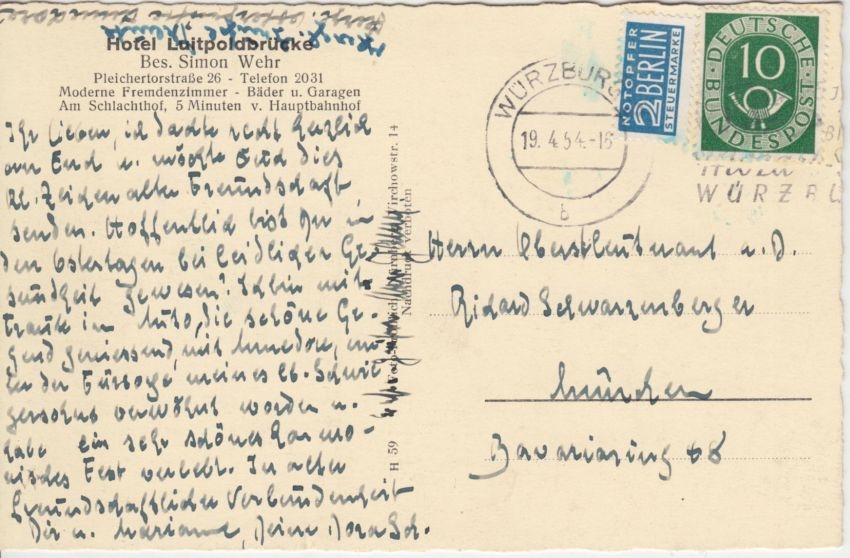 Hotel Luitpoldbrücke
Bes. Simon Wehr
Pleichertorstraße 26 - Telefon 2031
Moderne Fremdenzimmer - Bäder u. Garagen
Am Schlachthof, 5 Minuten v. Hauptbahnhof
Ihr Lieben, ich dachte recht herzlich
an Euch u. möchte Euch dies
kl. Zeichen alter Freundschaft
senden. Hoffentlich bist Du in
den Ostertagen bei leidlicher Ge-
sundheit gewesen! Ich bin mit
Traute im Auto, die schöne Ge-
gend geniessend, mit
der Fürsorge meines lb. Schwie
gersohns verwöhnt worden u.
habe ein sehr schönes harmo-
nisches Fest verlebt. In alter
freundschaftlicher Verbundenheit
Dir u. Marianne, Deine Dora Sch.
H 59
Virchowstr. 14
Nachdruck verboten
WÜRZBURG
19. 4. 54.-16
b
WÜRZBU
NOTOPFER
2 BERLIN
STEUERMARKE
DEUTSCHE
10
BUNDESPOST
Herrn Oberstleutnant a. D.
Richard Schwarzenberger
München
Bavariaring